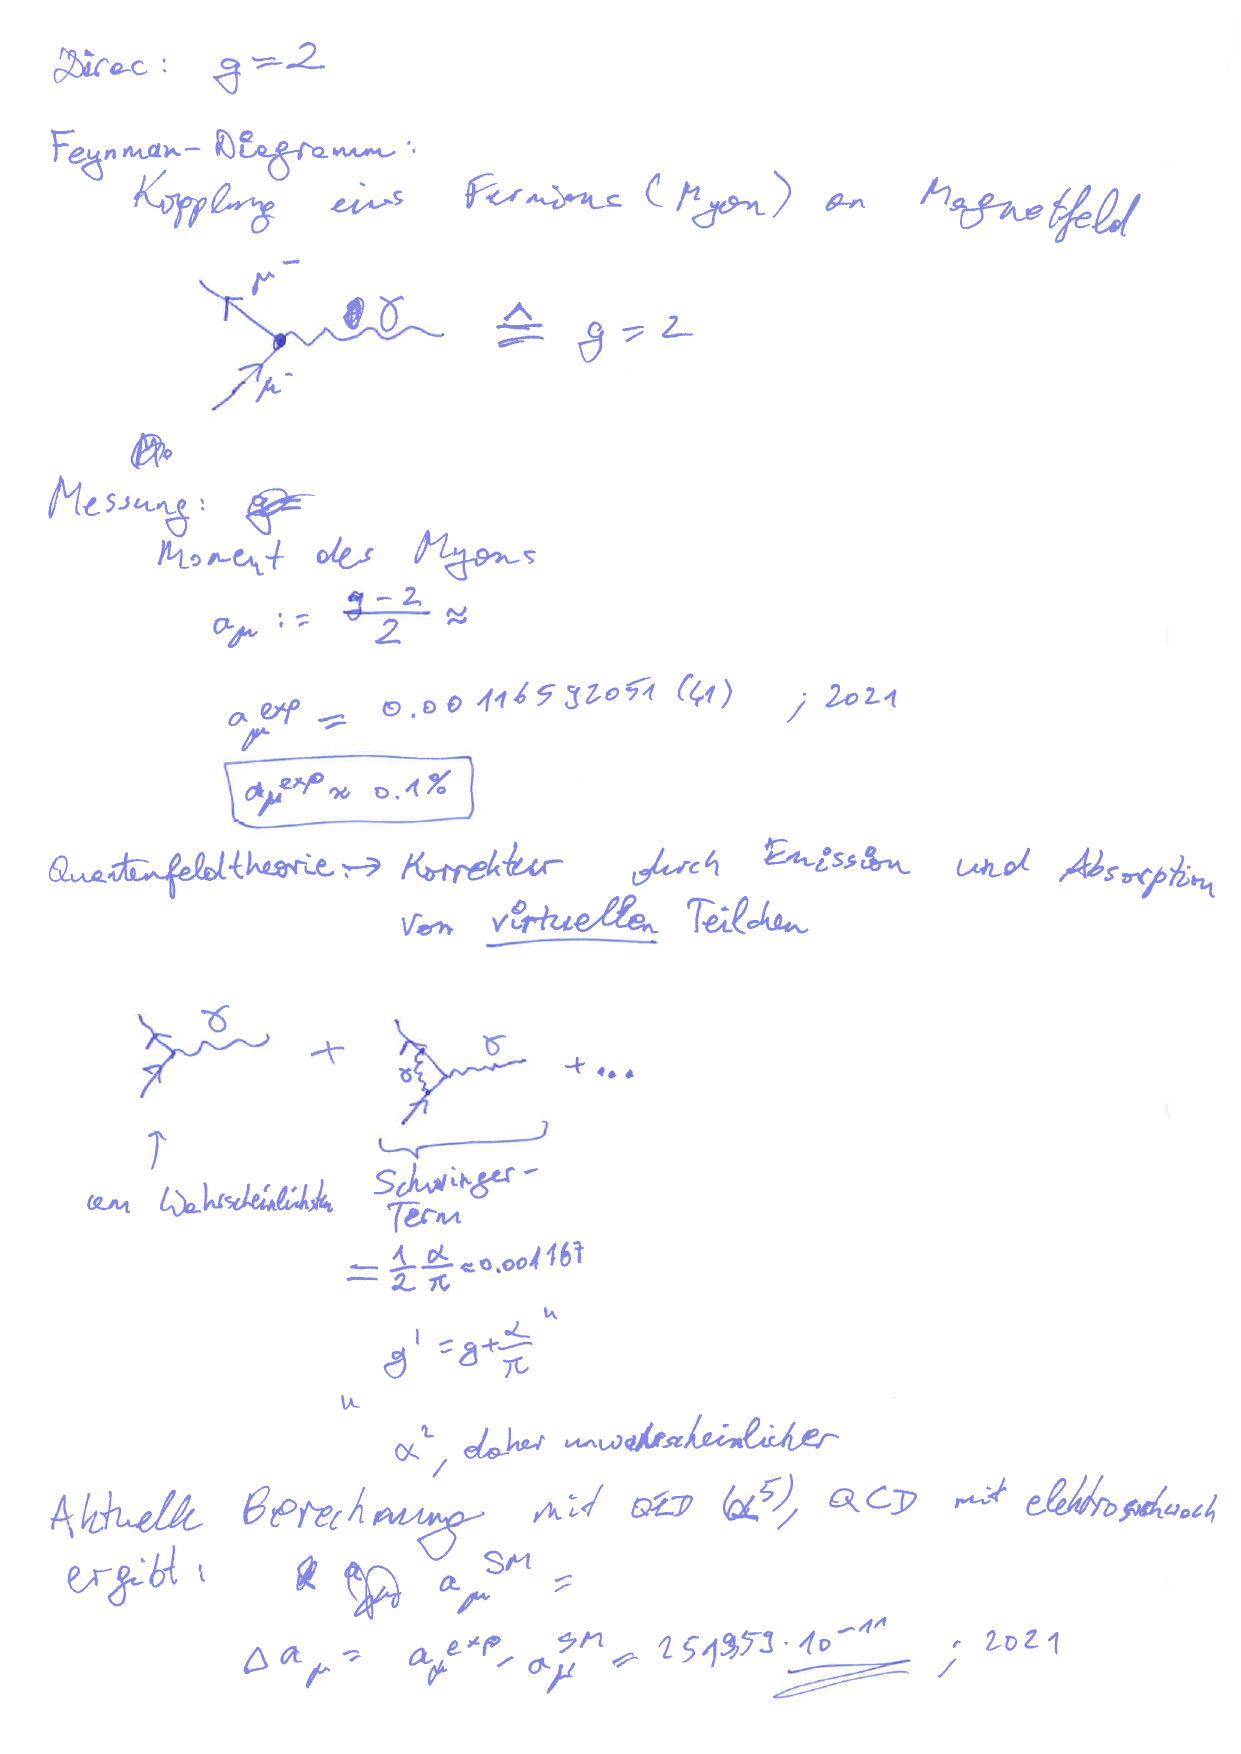 Dirac: g = 2
Feynman-Diagramm:
Kopplung eines Fermions (Myon) an Magnetfeld
μ⁻
γ ≙ g = 2
μ⁻
Messung:
Moment des Myons
a_μ := (g-2)/2 ≈
a_μ^exp = 0.00116592051(41) ; 2021
a_μ^exp ≈ 0.1%
Quantenfeldtheorie: → Korrektur durch Emission und Absorption
von virtuellen Teilchen
γ + γ γ + ...
↑
am Wahrscheinlichsten Schwinger-
Term
= 1/2 α/π ≈ 0.001167
g' = g + α/π
α², daher unwahrscheinlicher
Aktuelle Berechnung mit QED (α⁵), QCD mit elektroschwach
ergibt: a_μ^SM =
Δa_μ = a_μ^exp - a_μ^SM = · 10^-11 ; 2021